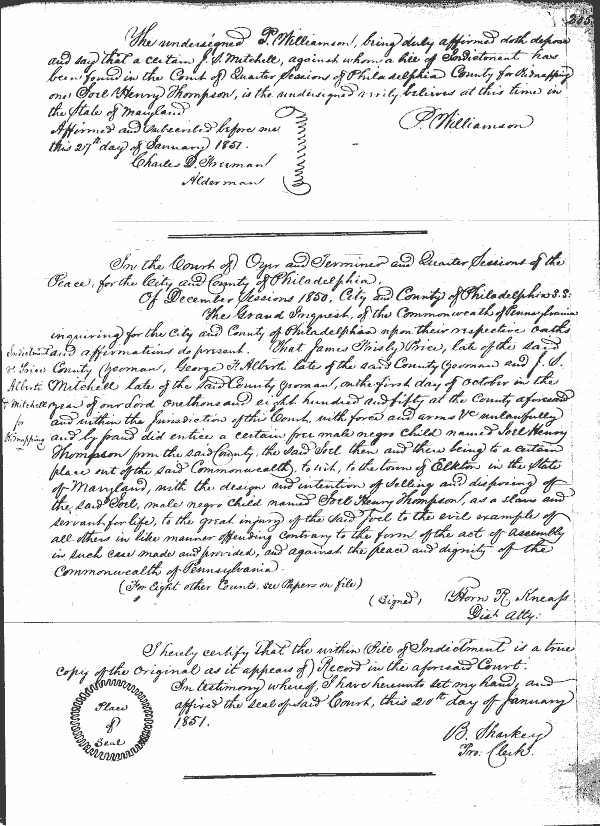 205
The undersigned P. Williamson, being duly affirmed doth depose
and say that a certain J. S. Mitchell, against whom a bill of Indictment has
been found in the Court of Quarter Sessions of Philadelphia County for Kidnapping
one Joel Henry Thompson, is the undersigned verily believes at this time in
the State of Maryland
Affirmed and subscribed before me
P. Williamson
this 27th day of January 1851.
Charles D. Freeman
Alderman
In the Court of Oyer and Terminer and Quarter Sessions of the
Peace, for the City and County of Philadelphia,
Of December Sessions 1850. City and County of Philadelphia S.S:
The Grand Inquest, of the Commonwealth of Pennsylvania
inquiring for the City and County of Philadelphia upon their respective oaths
and affirmations do present. That James Frisby Price, late of the said
County Yeoman, George F. Alberti late of the said County Yeoman and J. S.
Mitchell late of the said County yeoman, on the first day of October in the
year of our Lord one thousand eight hundred and fifty at the County aforesaid
and within the Jurisdiction of this Court, with force and arms &c unlawfully
and by fraud did entice a certain free male negro child named Joel Henry
Thompson from the said County, the said Joel then and there being to a certain
place out of the said Commonwealth, to wit, to the town of Elkton in the State
of Maryland, with the design and intention of selling and disposing of
the, said Joel, male negro child named Joel Henry Thompson, as a slave and
servant for life, to the great injury of the said Joel to the evil example of
all others in like manner offending contrary to the form of the act of Assembly
in such case made and provided, and against the peace and dignity of the
Commonwealth of Pennsylvania.
Indictment
vs Price
Alberti
& Mitchell
for
Kidnapping
(For Eight other Counts, see Papers on file)
(Signed) Horn R. Kneass
Dist. Atty:
I hereby certify that the within Bill of Indictment is a true
copy of the Original as it appears of Record in the aforesaid Court:
In testimony whereof, I have hereunto set my hand, and
affixed the seal of said Court, this 20th day of January
1851.
Place
of
Seal
B. Sharkey
Pro. Clerk.